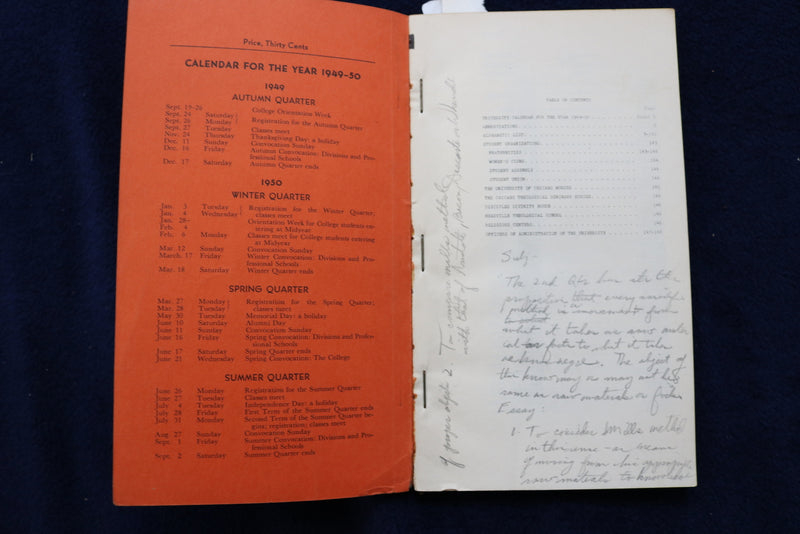 Price, Thirty Cents
CALENDAR FOR THE YEAR 1949-50
1949
AUTUMN QUARTER
Sept. 19-26 College Orientation Week
Sept. 24 Saturday
Sept. 26 Monday Registration for the Autumn Quarter
Sept. 27 Tuesday Classes meet
Nov. 24 Thursday Thanksgiving Day: a holiday
Dec. 11 Sunday Convocation Sunday
Dec. 16 Friday Autumn Convocation: Divisions and Pro-
fessional Schools
Dec. 17 Saturday Autumn Quarter ends
1950
WINTER QUARTER
Jan. 3 Tuesday Registration for the Winter Quarter;
Jan. 4 Wednesday classes meet
Jan. 28- Orientation Week for College students en-
Feb. 4 tering at Midyear
Feb. 6 Monday Classes meet for College students entering
at Midyear
Mar. 12 Sunday Convocation Sunday
March. 17 Friday Winter Convocation: Divisions and Pro-
fessional Schools
Mar. 18 Saturday Winter Quarter ends
SPRING QUARTER
Mar. 27 Monday Registration for the Spring Quarter;
Mar. 28 Tuesday classes meet
May 30 Tuesday Memorial Day: a holiday
June 10 Saturday Alumni Day
June 11 Sunday Convocation Sunday
June 16 Friday Spring Convocation: Divisions and Profes-
sional Schools
June 17 Saturday Spring Quarter ends
June 21 Wednesday Spring Convocation: The College
SUMMER QUARTER
June 26 Monday Registration for the Summer Quarter
June 27 Tuesday Classes meet
July 4 Tuesday Independence Day: a holiday
July 28 Friday First Term of the Summer Quarter ends
July 31 Monday Second Term of the Summer Quarter be-
gins; registration; classes meet
Aug. 27 Sunday Convocation Sunday
Sept. 1 Friday Summer Convocation: Divisions and Pro-
fessional Schools
Sept. 2 Saturday Summer Quarter ends
TABLE OF CONTENTS
Page
UNIVERSITY CALENDAR FOR THE YEAR 1949-50
ABBREVIATIONS
ALPHABETIC LIST
STUDENT ORGANIZATIONS
FRATERNITIES
WOMEN'S CLUBS
STUDENT ASSEMBLY
STUDENT UNION
THE UNIVERSITY OF CHICAGO
THE CHICAGO THEOLOGICAL SEMINARY
DISCIPLES DIVINITY HOUSE
MEADVILLE THEOLOGICAL SCHOOL
RELIGIOUS CENTERS
OFFICERS OF ADMINISTRATION OF THE UNIVERSITY
The 2nd
proposition that every
method is movement from
what it takes as raw mater
to what it takes
The object of
this know may or may not be
same as raw materials
Essay:
1. To consider Mill's method
in this sense - as means
of moving from his appropriate
raw materials to knowledge
2. To compare Mill's method
with that of